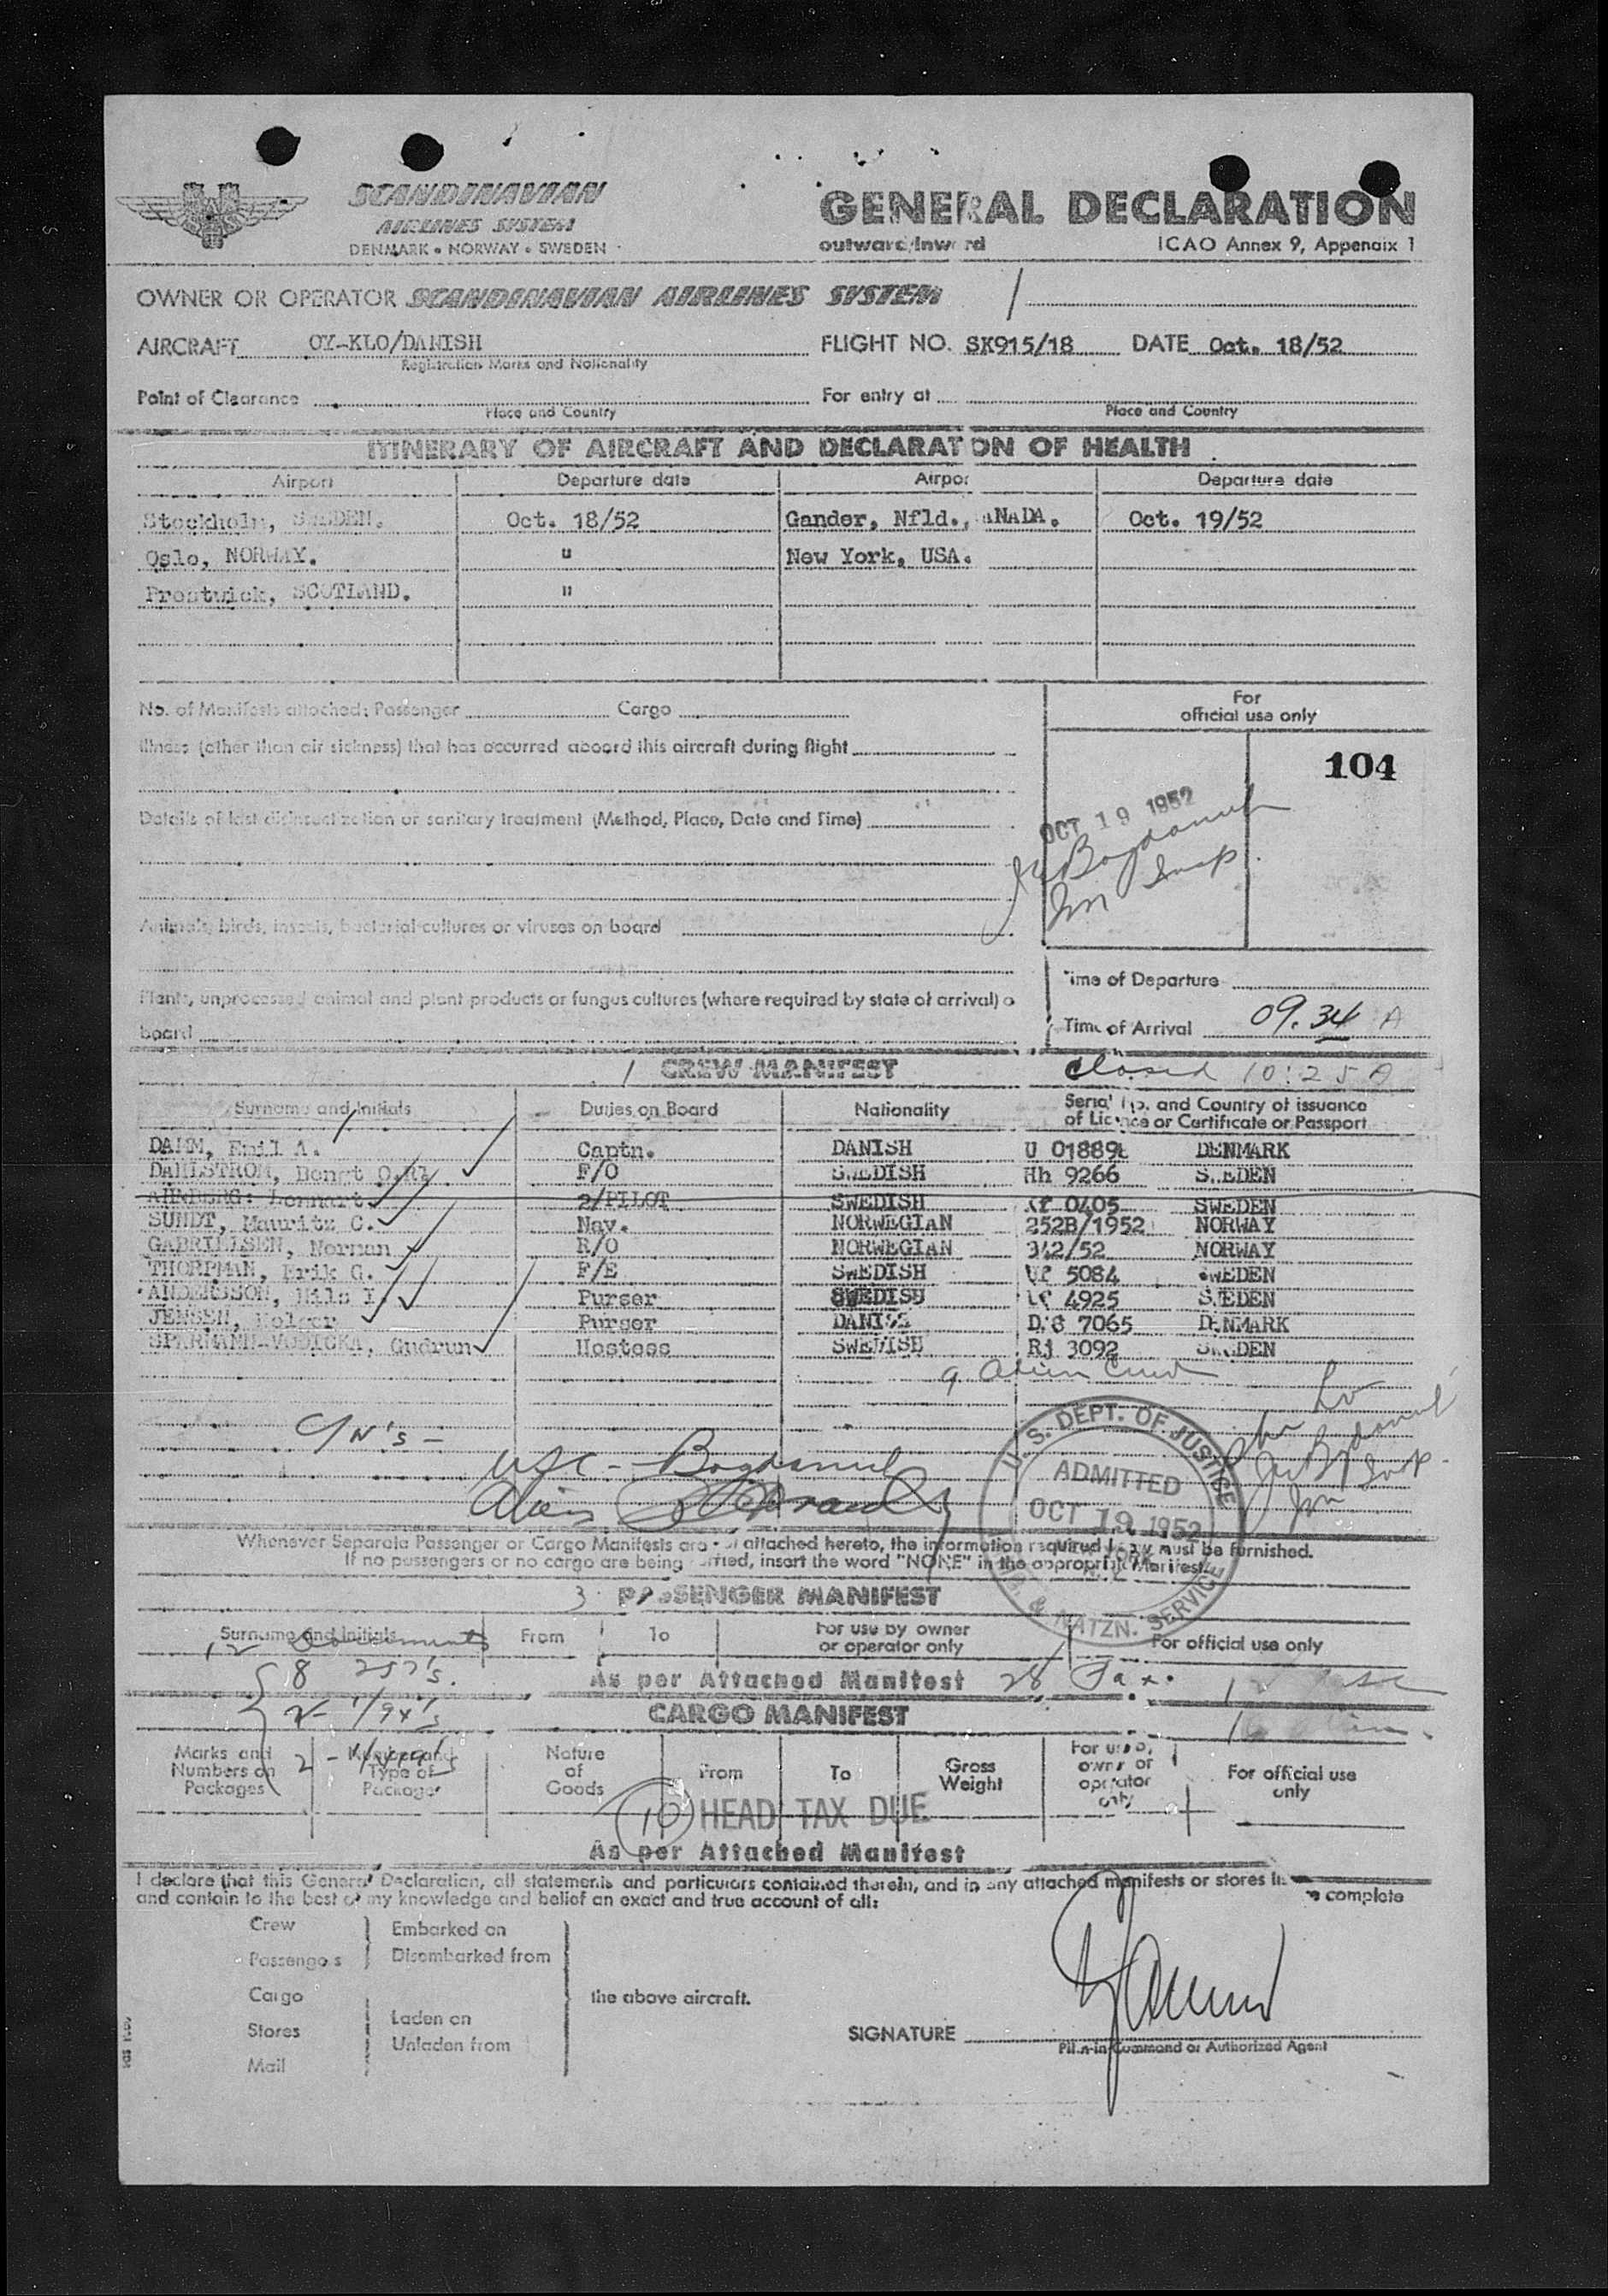 SCANDINAVIAN
AIRLINES SYSTEM
DENMARK • NORWAY • SWEDEN
GENERAL DECLARATION
outward/inward ICAO Annex 9, Appendix 1
OWNER OR OPERATOR SCANDINAVIAN AIRLINES SYSTEM
AIRCRAFT OY-KLO/DANISH FLIGHT NO. SK915/18 DATE Oct. 18/52
Registration Marks and Nationality
Point of Clearance For entry at
Place and Country Place and Country
ITINERARY OF AIRCRAFT AND DECLARATION OF HEALTH
Airport Departure date Airport Departure date
Stockholm, SWEDEN. Oct. 18/52 Gander, Nfld., CANADA. Oct. 19/52
Oslo, NORWAY. " New York, USA.
Prestwick, SCOTLAND. "
No. of Manifests attached: Passenger Cargo
For
official use only
Illness (other than air sickness) that has occurred aboard this aircraft during flight
104
OCT 19 1952
Details of last disinsectization or sanitary treatment (Method, Place, Date and Time)
Animals, birds, insects, bacterial cultures or viruses on board
Time of Departure
Plants, unprocessed animal and plant products or fungus cultures (where required by state of arrival) o
board
Time of Arrival 09.34 A
CREW MANIFEST closed 10:25 A
Surname and Initials Duties on Board Nationality Serial No. and Country of issuance
of Licence or Certificate or Passport
DAMM, Emil A. Captn. DANISH U 01889 DENMARK
DAHLSTROM, Bengt O. F/O SWEDISH Hh 9266 SWEDEN
Lennart 2/PILOT SWEDISH 0405 SWEDEN
SUNDT, Mauritz C. Nav. NORWEGIAN 252B/1952 NORWAY
GABRIELSEN, Norman R/O NORWEGIAN 342/52 NORWAY
THORPMAN, Erik G. F/E SWEDISH 5084 SWEDEN
ANDERSSON, Nils I. Purser SWEDISH 4925 SWEDEN
JENSEN, Holger Purser DANISH 7065 DENMARK
SPARMANN-VODICKA, Gudrun Hostess SWEDISH Rj 3092 SWEDEN
9 Alien Crew
9 N's -
USC - Bogdanul
Alien
U.S. DEPT. OF JUSTICE
ADMITTED
OCT 19 1952
& NATZN. SERVICE
Whenever Separate Passenger or Cargo Manifests are not attached hereto, the information required below must be furnished.
If no passengers or no cargo are being carried, insert the word "NONE" in the appropriate Manifest.
3 PASSENGER MANIFEST
Surname and Initials From To For use by owner
or operator only For official use only
12 Documents
8 257's.
As per Attached Manifest 28 Pax.
CARGO MANIFEST
Marks and
Numbers on
Packages
Number and
Type of
Package
Nature
of
Goods
From To Gross
Weight
For use by
owner or
operator
only
For official use
only
10 HEAD TAX DUE
As per Attached Manifest
I declare that this General Declaration, all statements and particulars contained therein, and in any attached manifests or stores li complete
and contain to the best of my knowledge and belief an exact and true account of all:
Crew Embarked on
Passengers Disembarked from
Cargo the above aircraft.
Stores Laden on
Unladen from
Mail
SIGNATURE
Pilot-in-Command or Authorized Agent